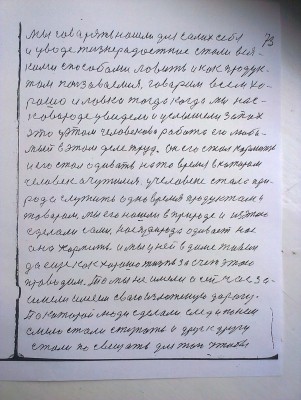 73
мы товар этв нашли для самих себя
и уводе жизнерадостние стали вся-
кими способами ловить и как продук-
том пользоваемся, говорим всем хо-
рошо и ловко тогда когда мы нас-
ковороде увидели и услышели запах
это у этом человекова работа его люби-
мый в этом деле труд. Он его стал кормить
и его стал одивать на то время в котором
человек очутился. у человека стало при-
рода служить одно время продуктами
товаром, мы его нашли в природе и из этого
сделали сами, нас природа одивает нас
она кормить и мы у ней в доме живем
да еще как хорошо жизнь за счет этого
проводим. То мы не имели а сейчас за-
имели имеем свою изложенную дорогу.
По которой люди сделали след и по нем
смело стали ступать и друг к другу
стали по свещать для того чтобы